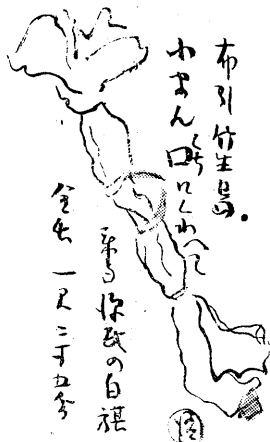 布引竹生島。
小まん 口にくわへて
来る 源氏の白旗
全長 一尺二寸五分